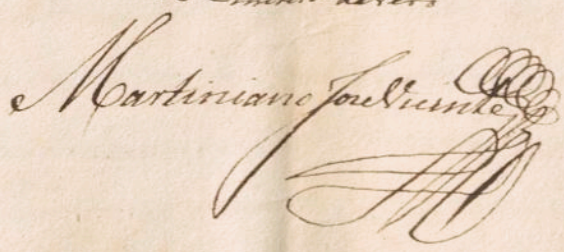 Martiniano Jose Vicente